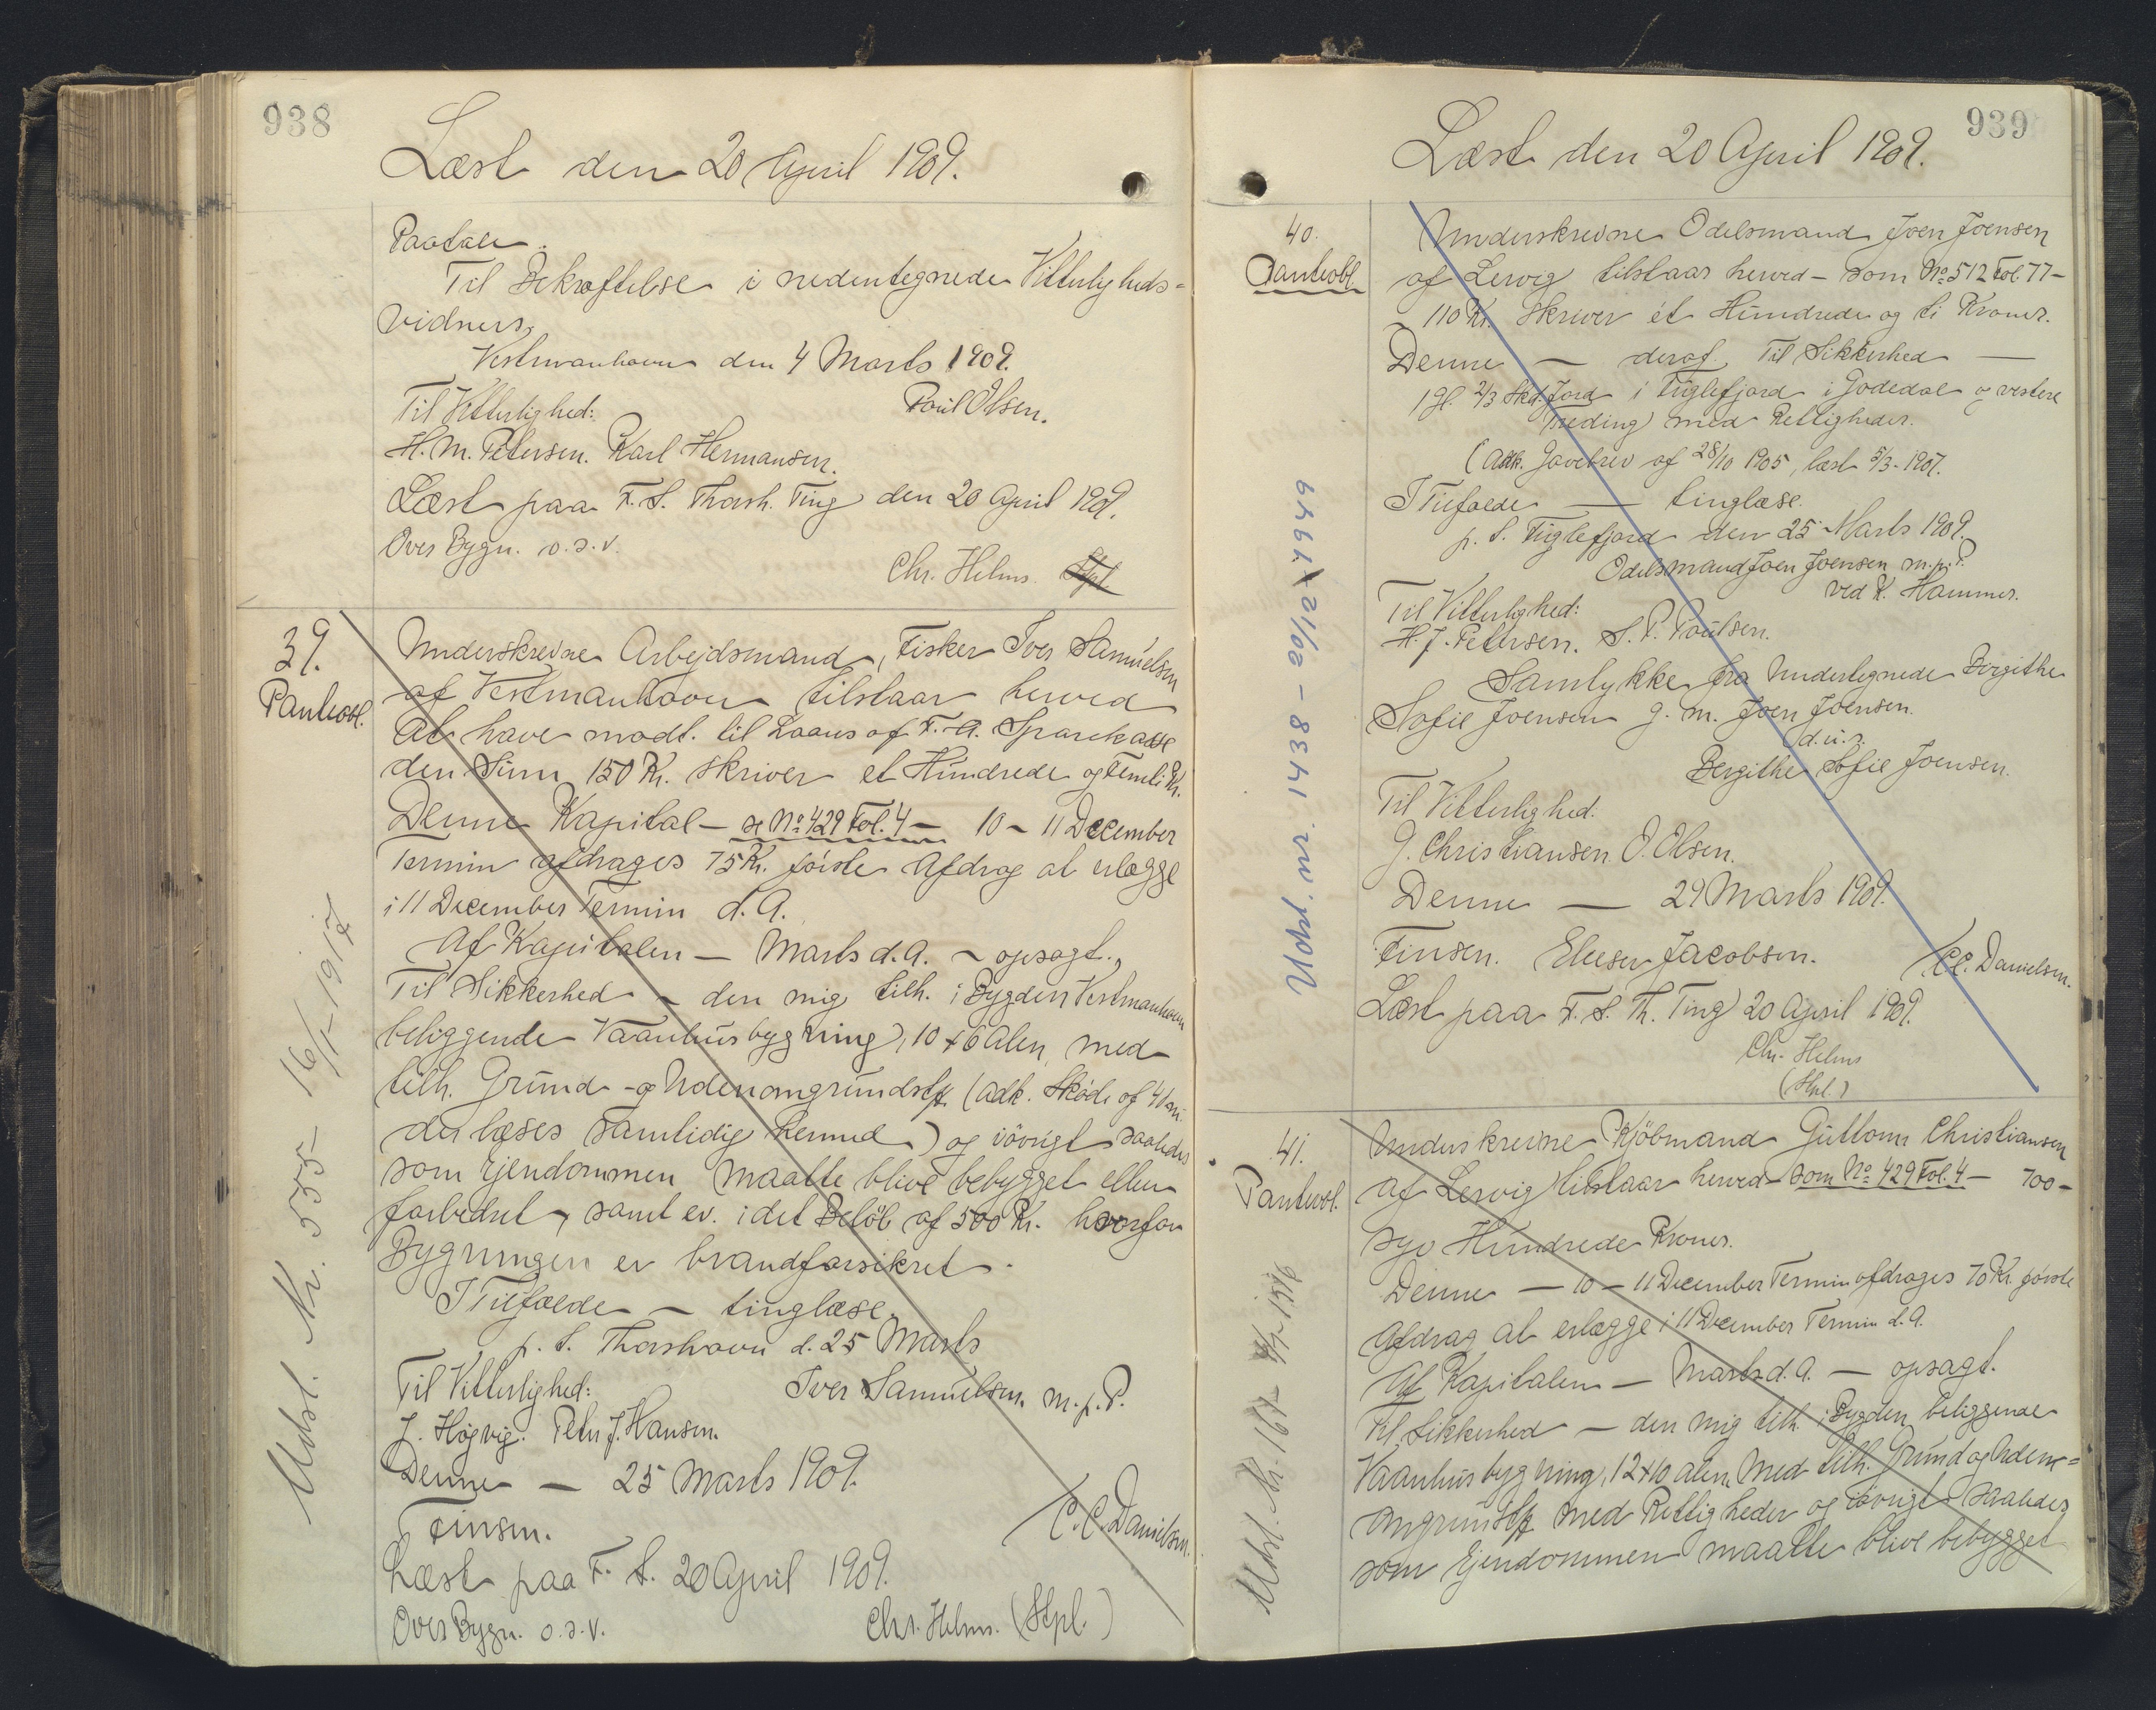 938
Læst den 20 April 1909.
Paatale.
Til Bekræftelse i nedentegnede Vitterligheds=
vidners,
Vestmanhavn den 4 Marts 1909.
Til Vitterlighed:
Poul Olsen.
H. M. Petersen. Karl Hermansen.
Læst paa F. S. Thorsh. Ting den 20 April 1909.
Over Bygn. o.s.v.
Chr. Helms. Stpl.
39.
Panteobl.
Underskrevne Arbejdsmand, Fisker Iver Samuelsen
af Vestmanhavn tilstaar herved
At have modt. til Laans af F. A. Sparekasse
den Sum 150 Kr. skriver et Hundrede og Femti Kr.
Denne Kapital – se No. 429 Fol. 4 – 10 – 11 December
Termin afdrages 75 Kr. første Afdrag at erlægge
i 11 December Termin d. A.
Af Kapitalen – Marts d. A. – opsagt.
Til Sikkerhed – den mig tilh. i Bygden Vestmanhavn
beliggende Vaanhusbygning, 10 x 6 Alen, med
tilh. Grund- og Udenomgrundstk. (Adk. Skøde af 4 ds.
der læses samtidig hermed) og iøvrigt saaledes
som Ejendommen maatte blive bebygget eller
forbedret, samt ev. i det Beløb af 500 Kr. hvorfor
Bygningen er brandforsikret.
I Tilfælde – tinglæse.
p. t. Thorshavn d. 25 Marts
Til Vitterlighed:
Iver Samuelsen. m. p. P.
J. Højvig. Peter J. Hansen.
Denne – 25 Marts 1909.
Finsen.
C. C. Danielsen.
Læst paa F. S. 20 April 1909.
Over Bygn. o.s.v.
Chr. Helms. (Stpl.)
Udsl. Nr. 555 – 16/1-1917
939
Læst den 20 April 1909.
40.
Panteobl.
Underskrevne Odelsmand Joen Joensen
af Lervig tilstaar herved – som No. 512 Fol. 77 –
110 Kr. skriver ét Hundrede og ti Kroner.
Denne – deraf. Til Sikkerhed –
1 gl. 2/3 Skd. Jord i Fuglefjord i Godedal og vestere
Treding med Rettigheder.
(Adk. Gavebrev af 28/10 1905, læst 5/3-1907.
I Tilfælde – tinglæse.
p. t. Fuglefjord den 25 Marts 1909.
Odelsmand Joen Joensen m. p. P.
ved K. Hammer.
Til Vitterlighed:
H. J. Petersen. S. P. Poulsen.
Samtykke fra Undertegnede Birgithe
Sofie Joensen g. m. Joen Joensen.
d. u. s.
Bergithe Sofie Joensen.
Til Vitterlighed:
G. Christiansen. O. Olsen.
Denne – 29 Marts 1909.
Finsen. Elieser Jacobsen.
C. C. Danielsen.
Læst paa F. S. Th. Ting 20 April 1909.
Chr. Helms
(Stpl.)
Udsl. nr. 1438 – 20/12 1949
41.
Panteobl.
Underskrevne Kjøbmand Guttorm Christiansen
af Lervig tilstaar herved – som No. 429 Fol. 4 – 700 –
syv Hundrede Kroner.
Denne – 10 – 11 December Termin afdrages 70 Kr. første
Afdrag at erlægge i 11 December Termin d. A.
Af Kapitalen – Marts d. A. – opsagt.
Til Sikkerhed – den mig tilh. i Bygden beliggende
Vaanhusbygning, 12 x 10 Alen, med tilh. Grund og Uden=
omgrundstk. med Rettigheder og iøvrigt saaledes
som Ejendommen maatte blive bebygget
Udsl. Nr. 167